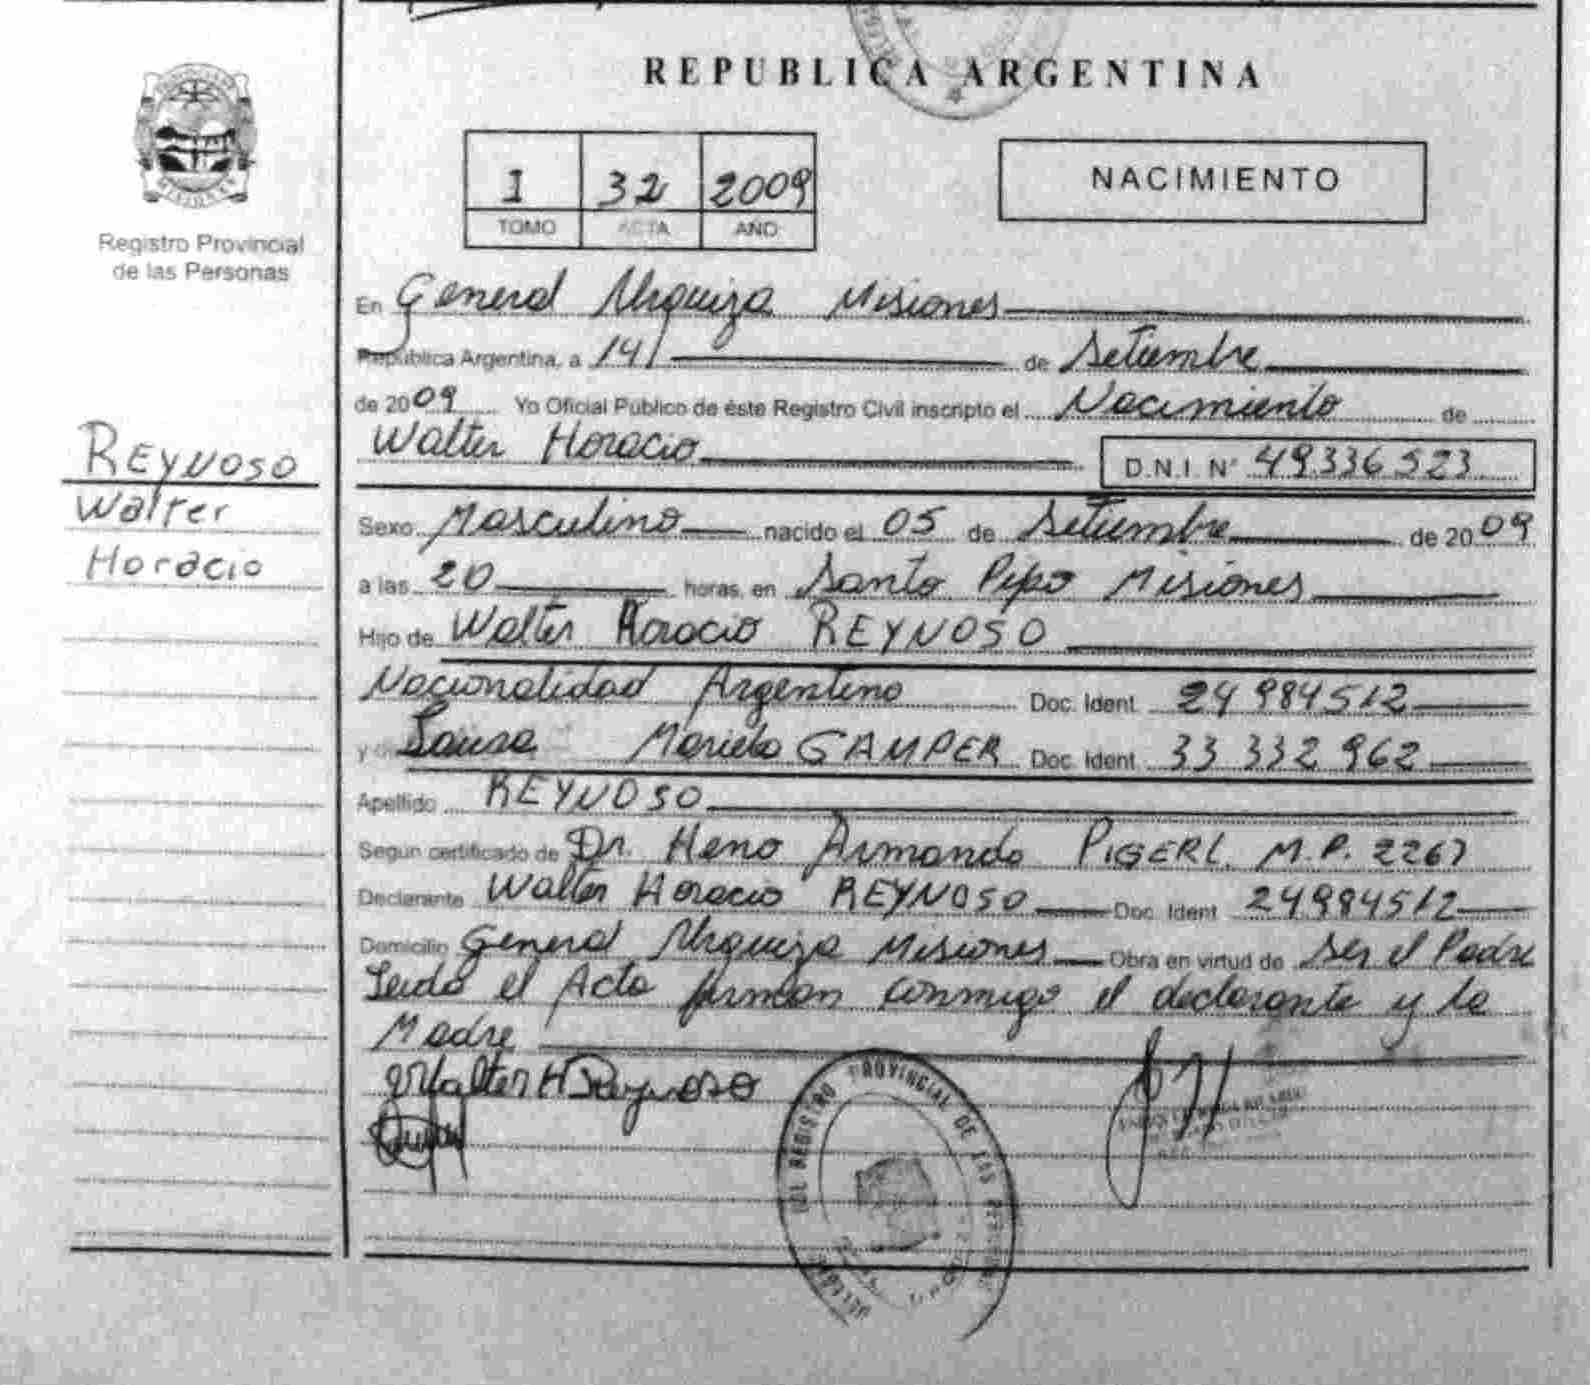 REPUBLICA ARGENTINA
1 32 2009
TOMO ACTA AÑO
NACIMIENTO
MISIONES
Registro Provincial
de las Personas
REYNOSO
Walter
Horacio
En General Urquiza Misiones
República Argentina, a 14 de Setiembre
de 2009 Yo Oficial Público de éste Registro Civil inscripto el Nacimiento de
Walter Horacio D.N.I. Nº 49336523
Sexo Masculino nacido el 05 de Setiembre de 2009
a las 20 horas, en Santo Pipo Misiones
Hijo de Walter Horacio REYNOSO
Nacionalidad Argentino Doc. Ident. 24 984512
y de Mariela GAMPER Doc. Ident. 33 332 962
Apellido REYNOSO
Según certificado de Dr. Armando PIGERL M.P. 2267
Declarante Walter Horacio REYNOSO Doc. Ident. 24984512
Domicilio General Urquiza Misiones Obra en virtud de Ser el Padre
Leido el Acta firman conmigo el declarante y la
Madre
Walter H Reynoso
REGISTRO PROVINCIAL DE LAS PERSONAS